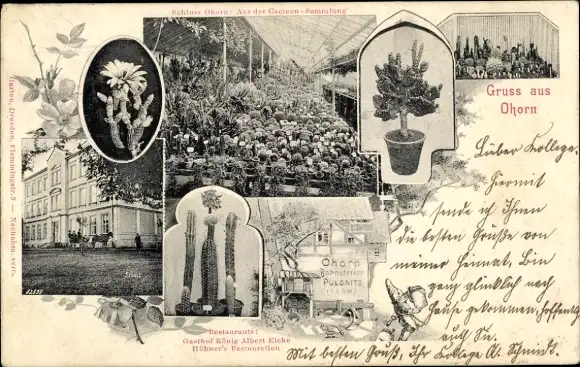 Schloss Ohorn: Aus der Cacteen-Sammlung
Gruss aus
Ohorn
Lieber Kollege.
Hiermit
sende ich Ihnen
die besten Grüße von
meiner Heimat. Bin
ganz glücklich nach
Hause gekommen, hoffentl.
auch Sie.
Mit besten Gruß, Ihr Kollege A. Schmidt.
Ohorn
Bahnstation
PULSNITZ
Restaurants:
Gasthof König Albert Eiche
Hübner's Restauration
Dresden, Flemmingstr. Nachahm. verb.